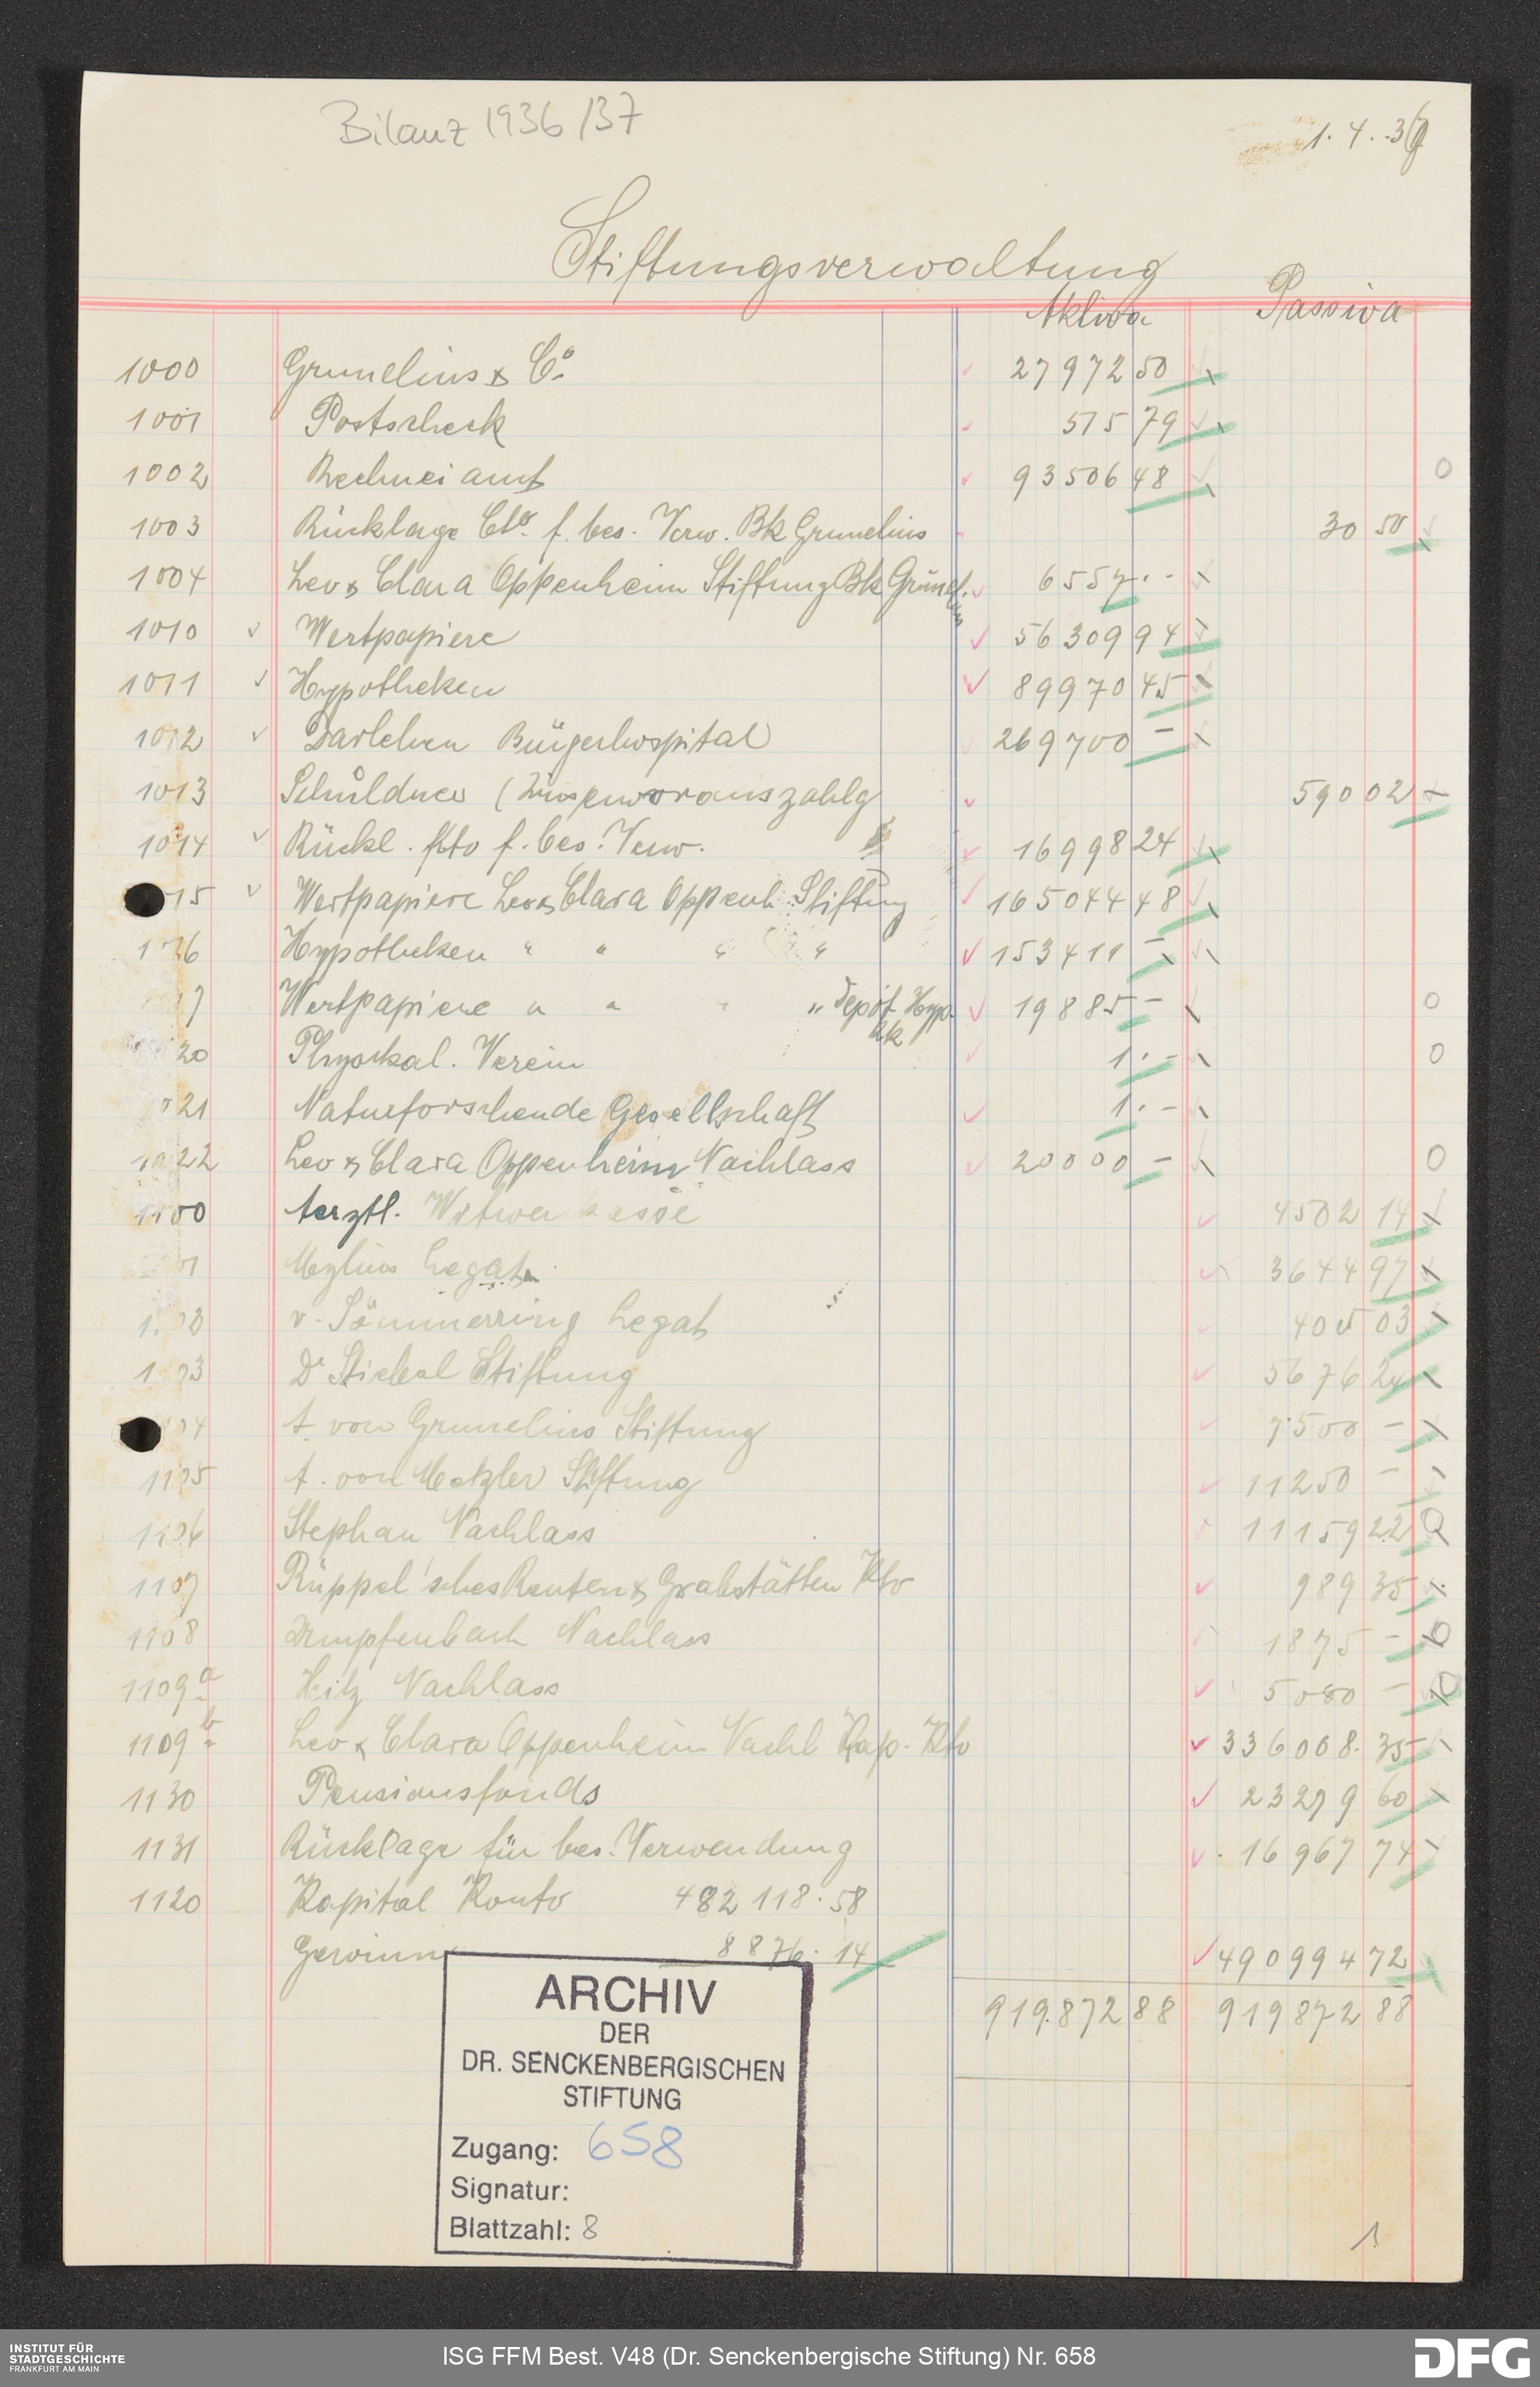 Bilanz 1936/37
1. 4. 36
Stiftungsverwaltung
Aktiva Passiva
1000 Grunelius & Co. 27972 50
1001 Postscheck 515 79
1002 Rechneiamt 93506 48
1003 Rücklage Cto. f. bes. Verw. Bk Grunelius 30 50
1004 Leo & Clara Oppenheim Stiftung Bk Grunel. 6557 . -
1010 Wertpapiere 56309 94
1011 Hypotheken 89970 45
1012 Darlehen Bürgerhospital 269700 -
1013 Schuldner (Zinsenvorauszahlg 590 02
1014 Rückl. Kto f. bes. Verw. 16998 24
15 Wertpapiere Leo & Clara Oppenh. Stiftung 165044 48
1 16 Hypotheken " " " " 153411 -
17 Wertpapiere " " " " Depôt Hyp. Bk 19885 -
20 Physikal. Verein 1. -
021 Naturforschende Gesellschaft 1. -
1022 Leo & Clara Oppenheim Nachlass 20000 -
1100 Aerztl. Witwenkasse 4502 14
01 Mylius Legat 3644 97
1 02 v. Sömmerring Legat 405 03
1 03 Dr Stiebel Stiftung 5676 24
04 A. von Grunelius Stiftung 7500 -
1105 A. von Metzler Stiftung 11250 -
1106 Stephan Nachlass 11159 22
1107 Rüppel'sches Renten & Grabstätten Kto 989 35
1108 Nachlass 1875 -
1109 a Nachlass 5000 -
1109 b Leo & Clara Oppenheim Nachl Kap. Kto 336008. 35
1130 Pensionsfonds 23279 60
1131 Rücklage für bes. Verwendung 16967 74
1120 Kapital Konto 482 118. 58
Gewinn 8876. 14 490994 72
919.872 88 919872 88
ARCHIV
DER
DR. SENCKENBERGISCHEN
STIFTUNG
Zugang: 658
Signatur:
Blattzahl: 8
1
INSTITUT FÜR
STADTGESCHICHTE
FRANKFURT AM MAIN
ISG FFM Best. V48 (Dr. Senckenbergische Stiftung) Nr. 658
DFG